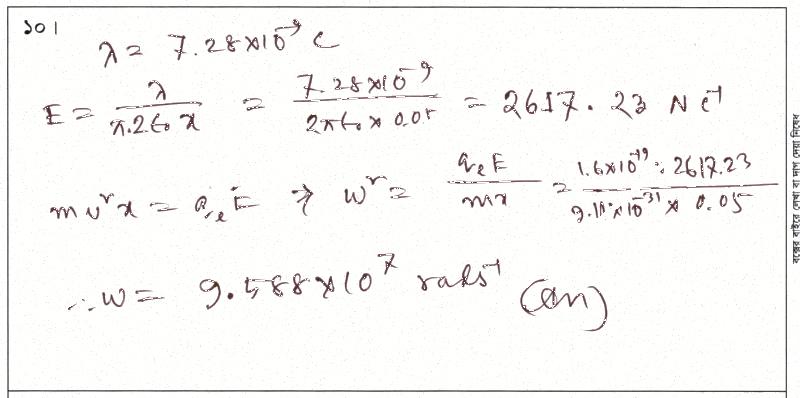 ১০।
λ = 7.28×10⁻⁹ C
E = λ / π.2ε₀ x = 7.28×10⁻⁹ / 2πε₀ × 0.05 = 2617.23 N C⁻¹
m ω² x = qₑ E ⇒ ω² = qₑE / mx = 1.6×10⁻¹⁹ × 2617.23 / 9.11×10⁻³¹ × 0.05
∴ ω = 9.588×10⁷ rads⁻¹ (an)
বক্সের বাইরে লেখা বা দাগ দেয়া নিষেধ